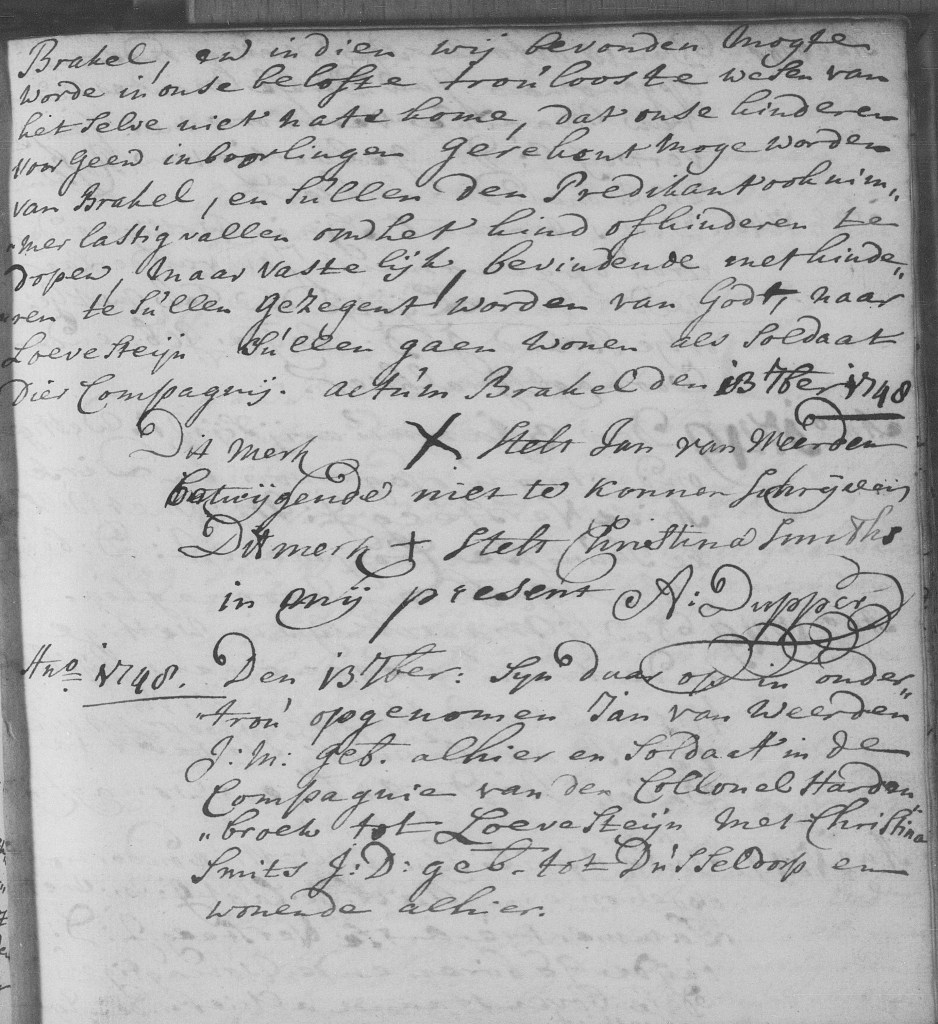 Brakel, en indien wij bevonden mogte
worde in onse belofte trouloos te wesen van
het selve niet nate kome, dat onse kinderen
voor geen inboorlingen gerekent moge worden
van Brakel, en súllen den Predikant ook nim„
„mer lastig vallen om het kind of kinderen te
dopen, maar vastelijk, bevindende met kinde„
„ren te súllen gezegent worden van Godt, naar
Loevesteijn súllen gaen wonen als soldaat
Dier Compagnij. actúm Brakel den 13 7ber 1748
Dit merk X stelt Jan van Weerden
betuijgende niet te konnen schrijven
Dit merk + stelt Christina Smiths
in mij present A: Dupper
Ano 1748. Den 13 7ber: Syn daar op in onder„
„troú opgenomen Jan van Weerden
J: M: geb. alhier en soldaat in de
Compagnie van den Collonel Harden
„broek tot Loevesteijn met Christina
Smits J: D: geb. tot Dússeldorp en
wonende alhier.